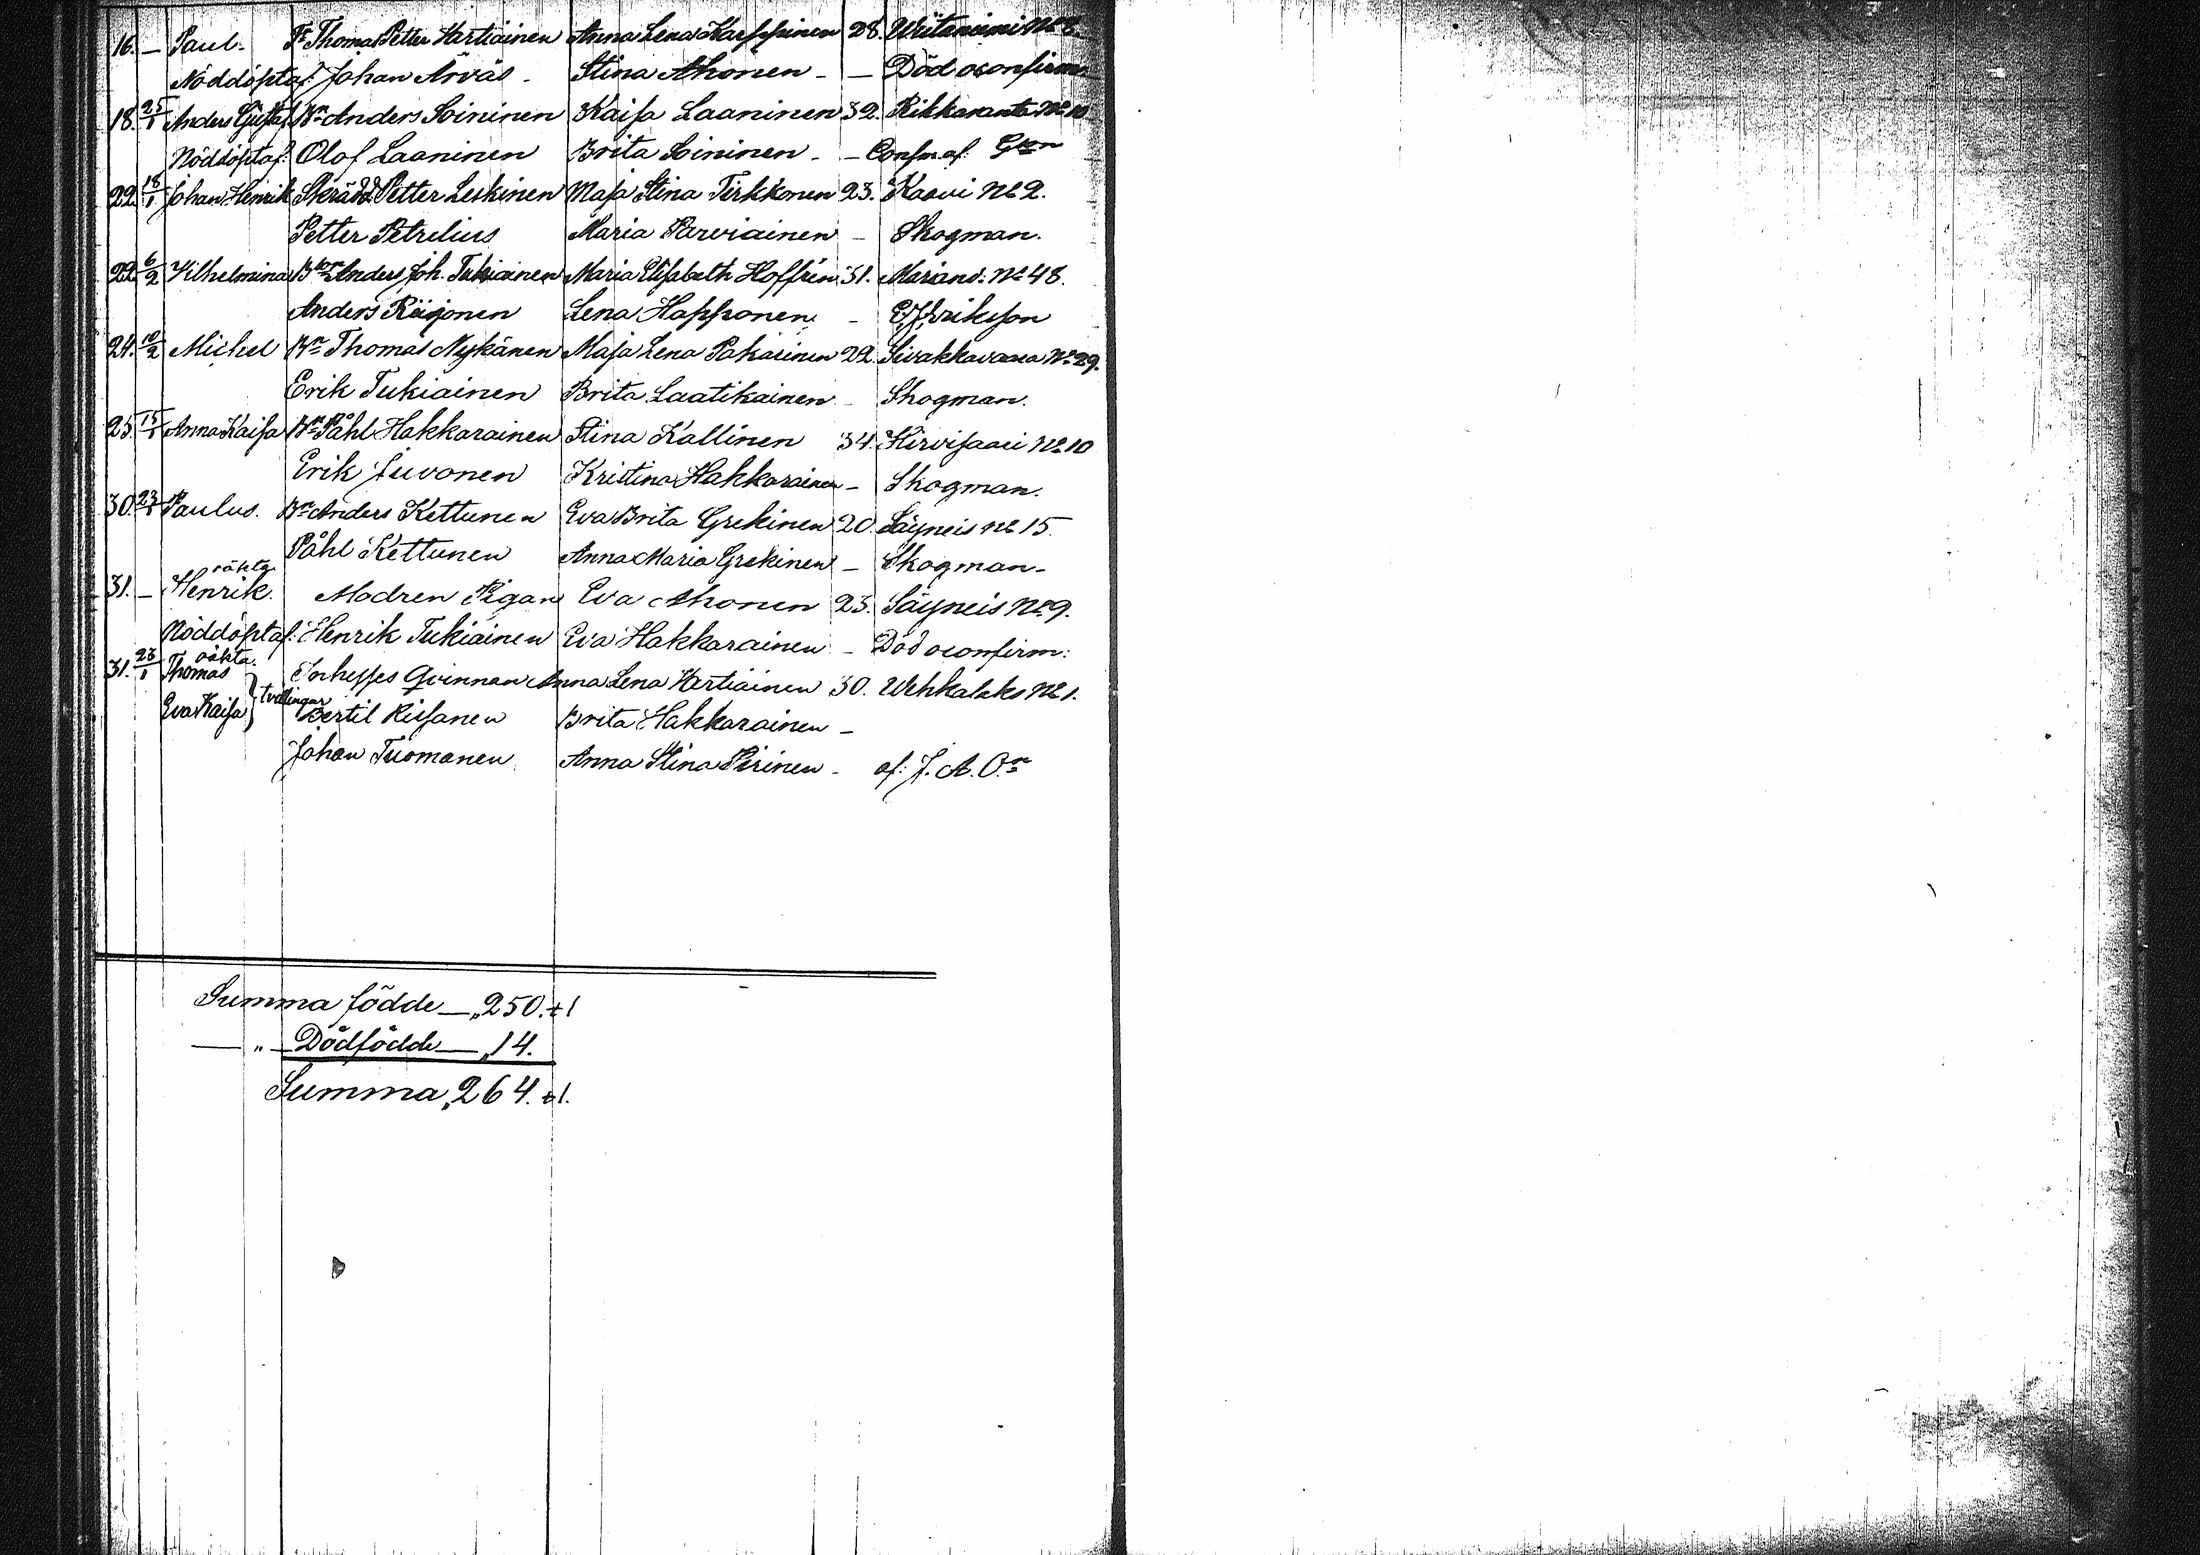 16. — Paul. Thomas Petter Hertiäinen Anna Lena Karppinen 28. Niitaniemi No 8.
Nöddöpt af: Johan Arväs - Stina Ahonen - — Död oconfirm:
18. 25/1 Anders Gustaf Bn Anders Soininen Kaisa Laaninen 32. Rikkaranta No 10
Nöddöpt af: Olof Laaninen Brita Soininen - — Confm af:
22. 18/1 Johan Henrik Skrädd Petter Leskinen Maja Stina Tirkkonen 23. Kaavi No 2.
Petter Petrelius Maria Parviainen — Skogman.
22. 6/2 Vilhelmina Anders Joh. Tukiainen Maria Elisabeth Hoffrén 31. Mariand: No 48.
Anders Räijonen Lena Happonen -
24. 10/2 Michel Bn Thomas Nykänen Maja Lena Pakarinen 22. Sivakkavaara No 29.
Erik Tukiainen Brita Laatikainen - Skogman.
25. 15/1 Anna Kaisa Bn Påhl Hakkarainen Stina Kallinen 34. Hirvisaari No 10
Erik Juvonen Kristina Hakkarainen — Skogman.
30. 23/1 Paulus. Bn Anders Kettunen Eva Brita Grekinen 20. Säyneis No 15.
Påhl Kettunen Anna Maria Grekinen — Skogman -
oäkta
31. — Henrik. Modren Pigan Eva Ahonen 23. Säyneis No 9.
Nöddöpt af: Henrik Tukiainen Eva Hakkarainen - Död oconfirm:
oäkta.
31. 23/1 Thomas Inhysses Qvinnan Anna Lena Hertiäinen 30. Wehkalaks No 1.
Eva Kaisa } tvillingar Bertil Riisanen Brita Hakkarainen —
Johan Tuomanen Anna Stina Pirinen - af: J. A. On
Summa födde — „250. + 1
— „ — Dödfödde — „14.
Summa „264. + 1.